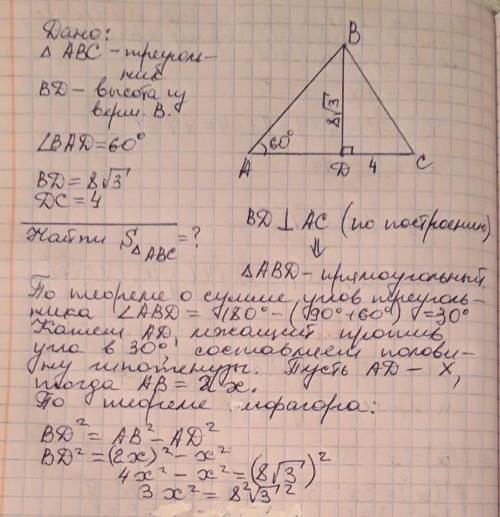 Дано:
△ ABC – треуголь-
ник
BD – высота из
верш. B.
∠BAD = 60°
BD = 8√3
DC = 4
Найти S△ABC = ?
B
8√3
60°
A
D
4
C
BD ⊥ AC (по построению)
⇓
△ABD – прямоугольный
По теореме о сумме углов треуголь-
ника ∠ABD = 180° – (90° + 60°) = 30°
Катет AD, лежащий против
угла в 30°, составляет полови-
ну гипотенузы. Пусть AD – x,
тогда AB = 2x.
По теореме Пифагора:
BD² = AB² – AD²
BD² = (2x)² – x²
4x² – x² = (8√3)²
3x² = 8²√3²